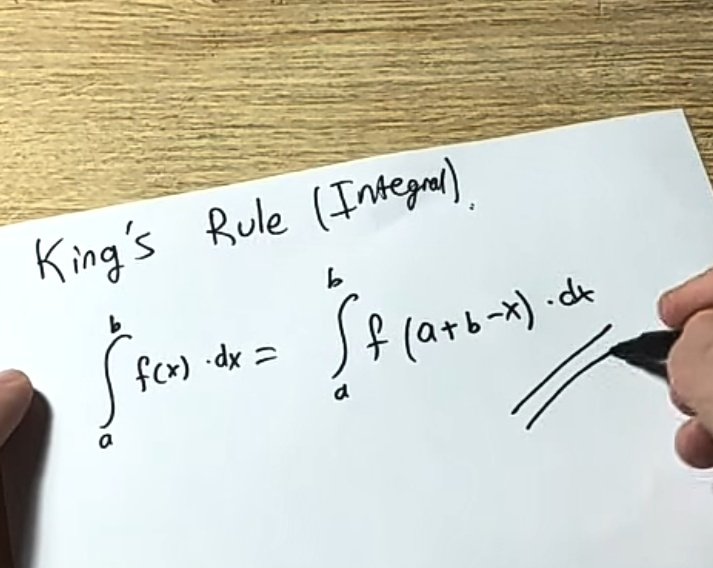 King's Rule (Integral).
∫_a^b f(x) · dx = ∫_a^b f (a+b-x) · dx